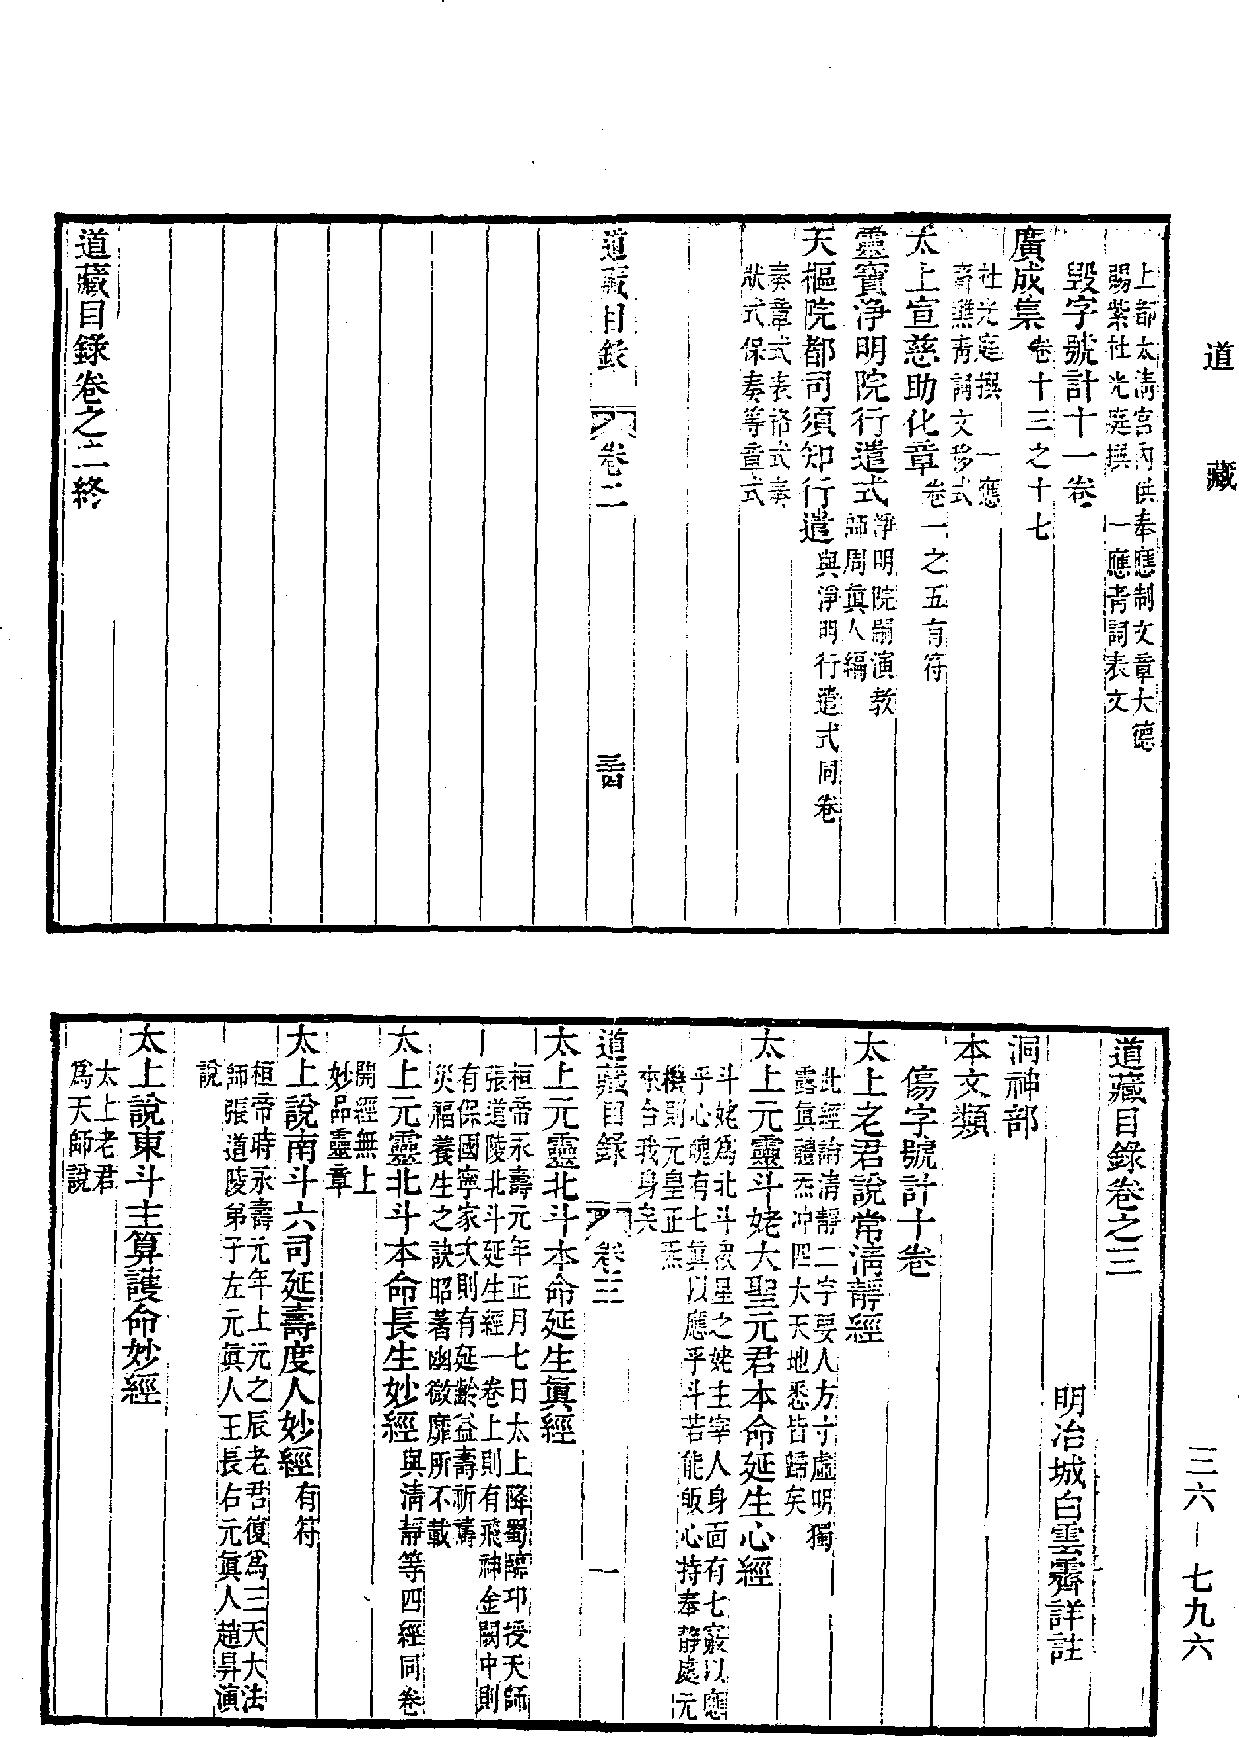 道藏
上都太清宮內供奉應制文章大德
賜紫杜光庭撰　一應青詞表文
毀字號計十一卷
廣成集卷十三之十七
杜光庭撰　一應
齋醮青詞文移式
太上宣慈助化章卷一之五有符
靈寶淨明院行遣式淨明院嗣演教
師周眞人編
天樞院都司須知行遣與淨明行遣式同卷
奏章式表詞式奏
狀式保奏等章式
道藏目錄　卷二　三四
道藏目錄卷之二終
道藏目錄卷之三
明冶城白雲霽詳註
洞神部
本文類
傷字號計十卷
太上老君說常淸靜經
此經論清靜二字要人方寸虛明獨
露眞體炁冲四大天地悉皆歸矣
太上元靈斗姥大聖元君本命延生心經
斗姥爲北斗衆星之姥主宰人身面有七竅以應
乎心魂有七眞以應乎斗若能皈心持奉靜處元
機則元皇正炁
來合我身矣
道藏目錄　卷三　一
太上元靈北斗本命延生眞經
桓帝永壽元年正月七日太上降蜀臨邛授天師
張道陵北斗延生經一卷上則有飛神金闕中則
有保國寧家次則有延齡益壽祈禱
災福養生之訣昭著幽微靡所不載
太上元靈北斗本命長生妙經與淸靜等四經同卷
開經無上
妙品靈章
太上說南斗六司延壽度人妙經有符
桓帝時永壽元年上元之辰老君復爲三天大法
師張道陵弟子左元眞人王長右元眞人趙昇演
說
太上說東斗主算護命妙經
太上老君
爲天師說
三六—七九六